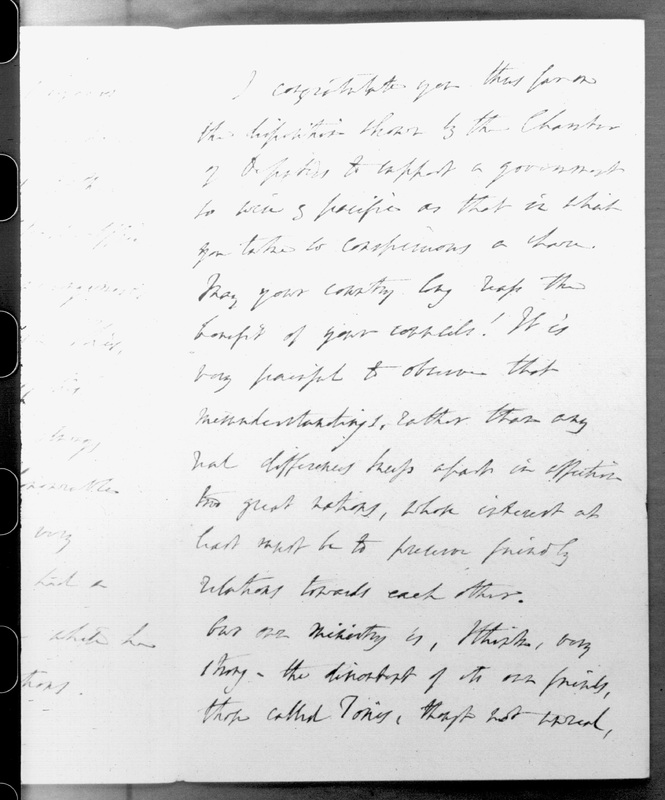 I congratulate you thus far on
the disposition shown by the Chamber
of Deputies to support a government
so wise & pacific as that in which
you take so conspicuous a share.
May your country long reap the
benefit of your counsels! It is
very painful to observe that
misunderstandings, rather than any
real differences keep apart in affection
two great nations, whose interest at
least must be to preserve friendly
relations towards each other.
Our own ministry is, I think, very
strong - the discontent of its own friends,
those called Tories, though not unreal,
very
had a
which he